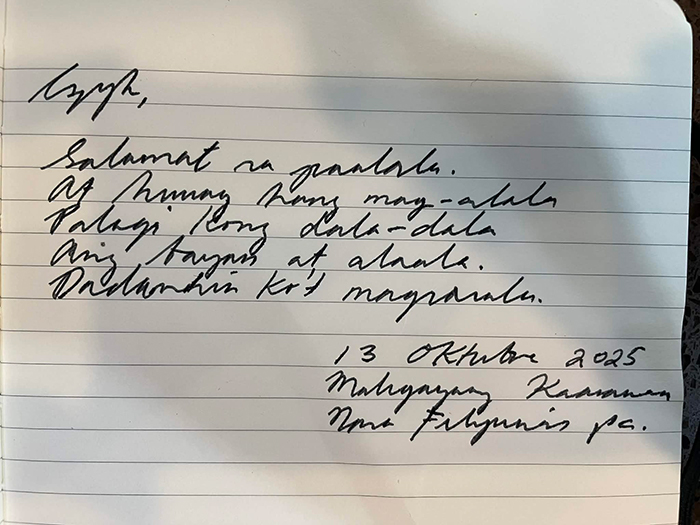 Salamat sa paalala.
At huwag kang mag-alala
Palagi kong dala-dala
Ang bayan at alaala.
Dadamhin ko't magpapala.
13 Oktubre 2025
Maligayang Kaarawan
Nasa Filipinas pa.